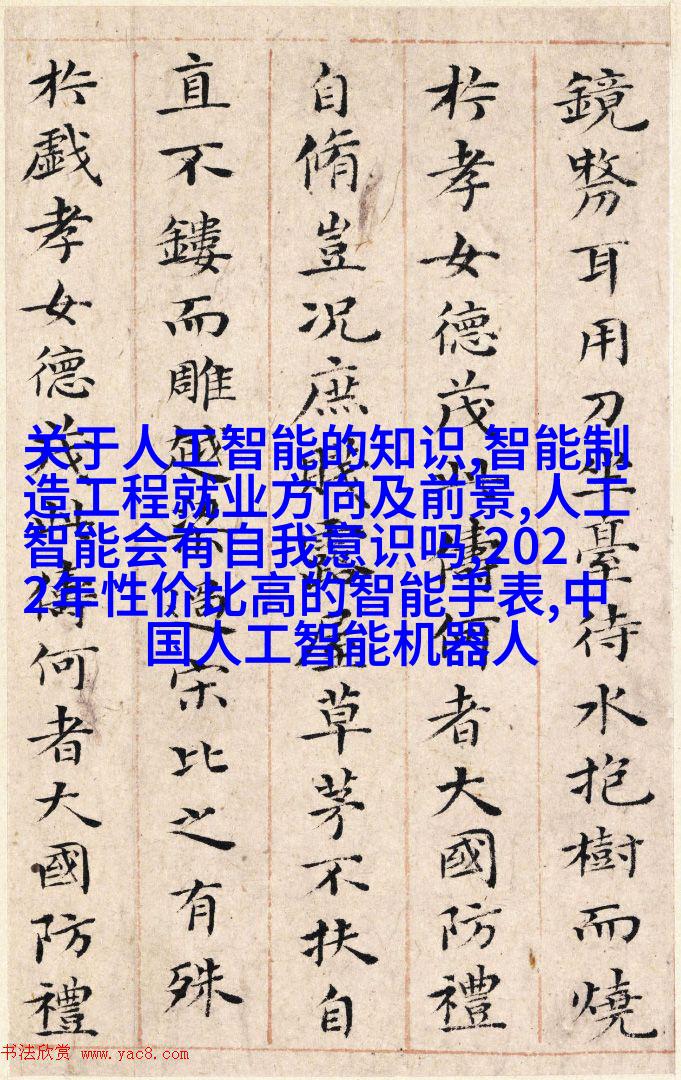 鏡剺耳用刀坐臺待水抱樹而燒
扵孝女德茂此儔何者大國防禮
自脩豈況庶賤露屋草茅不扶自
直不鏤而雕越梁過宋比之有殊
扵戲孝女德茂此儔何者大國防禮
关于人工智能的知识,智能制
造工程就业方向及前景,人工
智能会有自我意识吗,202
2年性价比高的智能手表,中
国人工智能机器人
书法欣赏 www.yac8.com